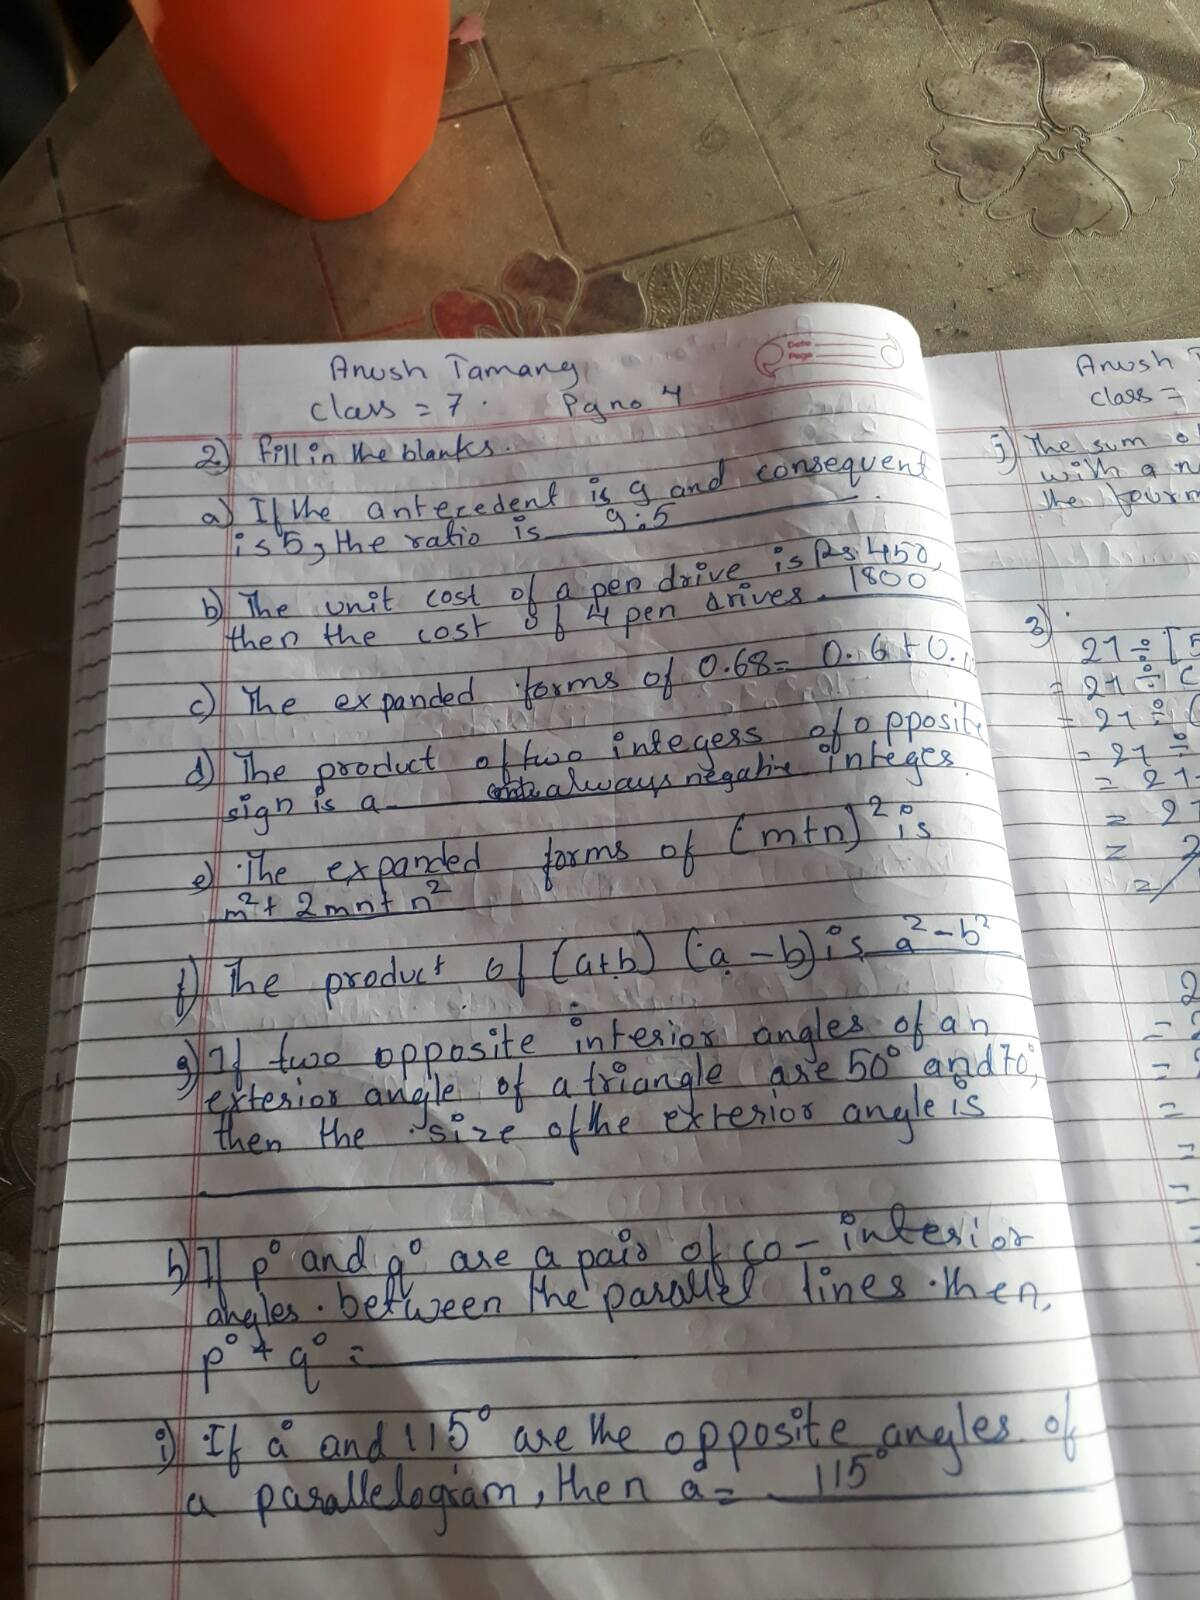 Anush Tamang
class = 7. Pg no 4
Date
Page
2) Fill in the blanks.
a) If the antecedent is 9 and consequent
is 5, the ratio is 9:5.
b) The unit cost of a pen drive is Rs 450,
then the cost of 4 pen drives. 1800
c) The expanded forms of 0.68 = 0.6 + 0.
d) The product of two integess of opposite
sign is a always negative integes.
e) The expanded forms of (m+n)² is
m² + 2mn + n²
f) The product of (a+b) (a-b) is a² - b²
g) If two opposite interior angles of an
exterior angle of a triangle are 50° and 70°,
then the size of the exterior angle is
h) If p° and q° are a pair of co-interior
angles between the parallel lines. then,
p° + q° =
i) If a° and 115° are the opposite angles of
a parallelogram, then a = 115°
Anush T
class =
j) The sum o
with a n
the fourm
3)
21 ÷ [5
= 21 ÷ (
= 21 ÷ (
= 21 ÷
= 21
= 2